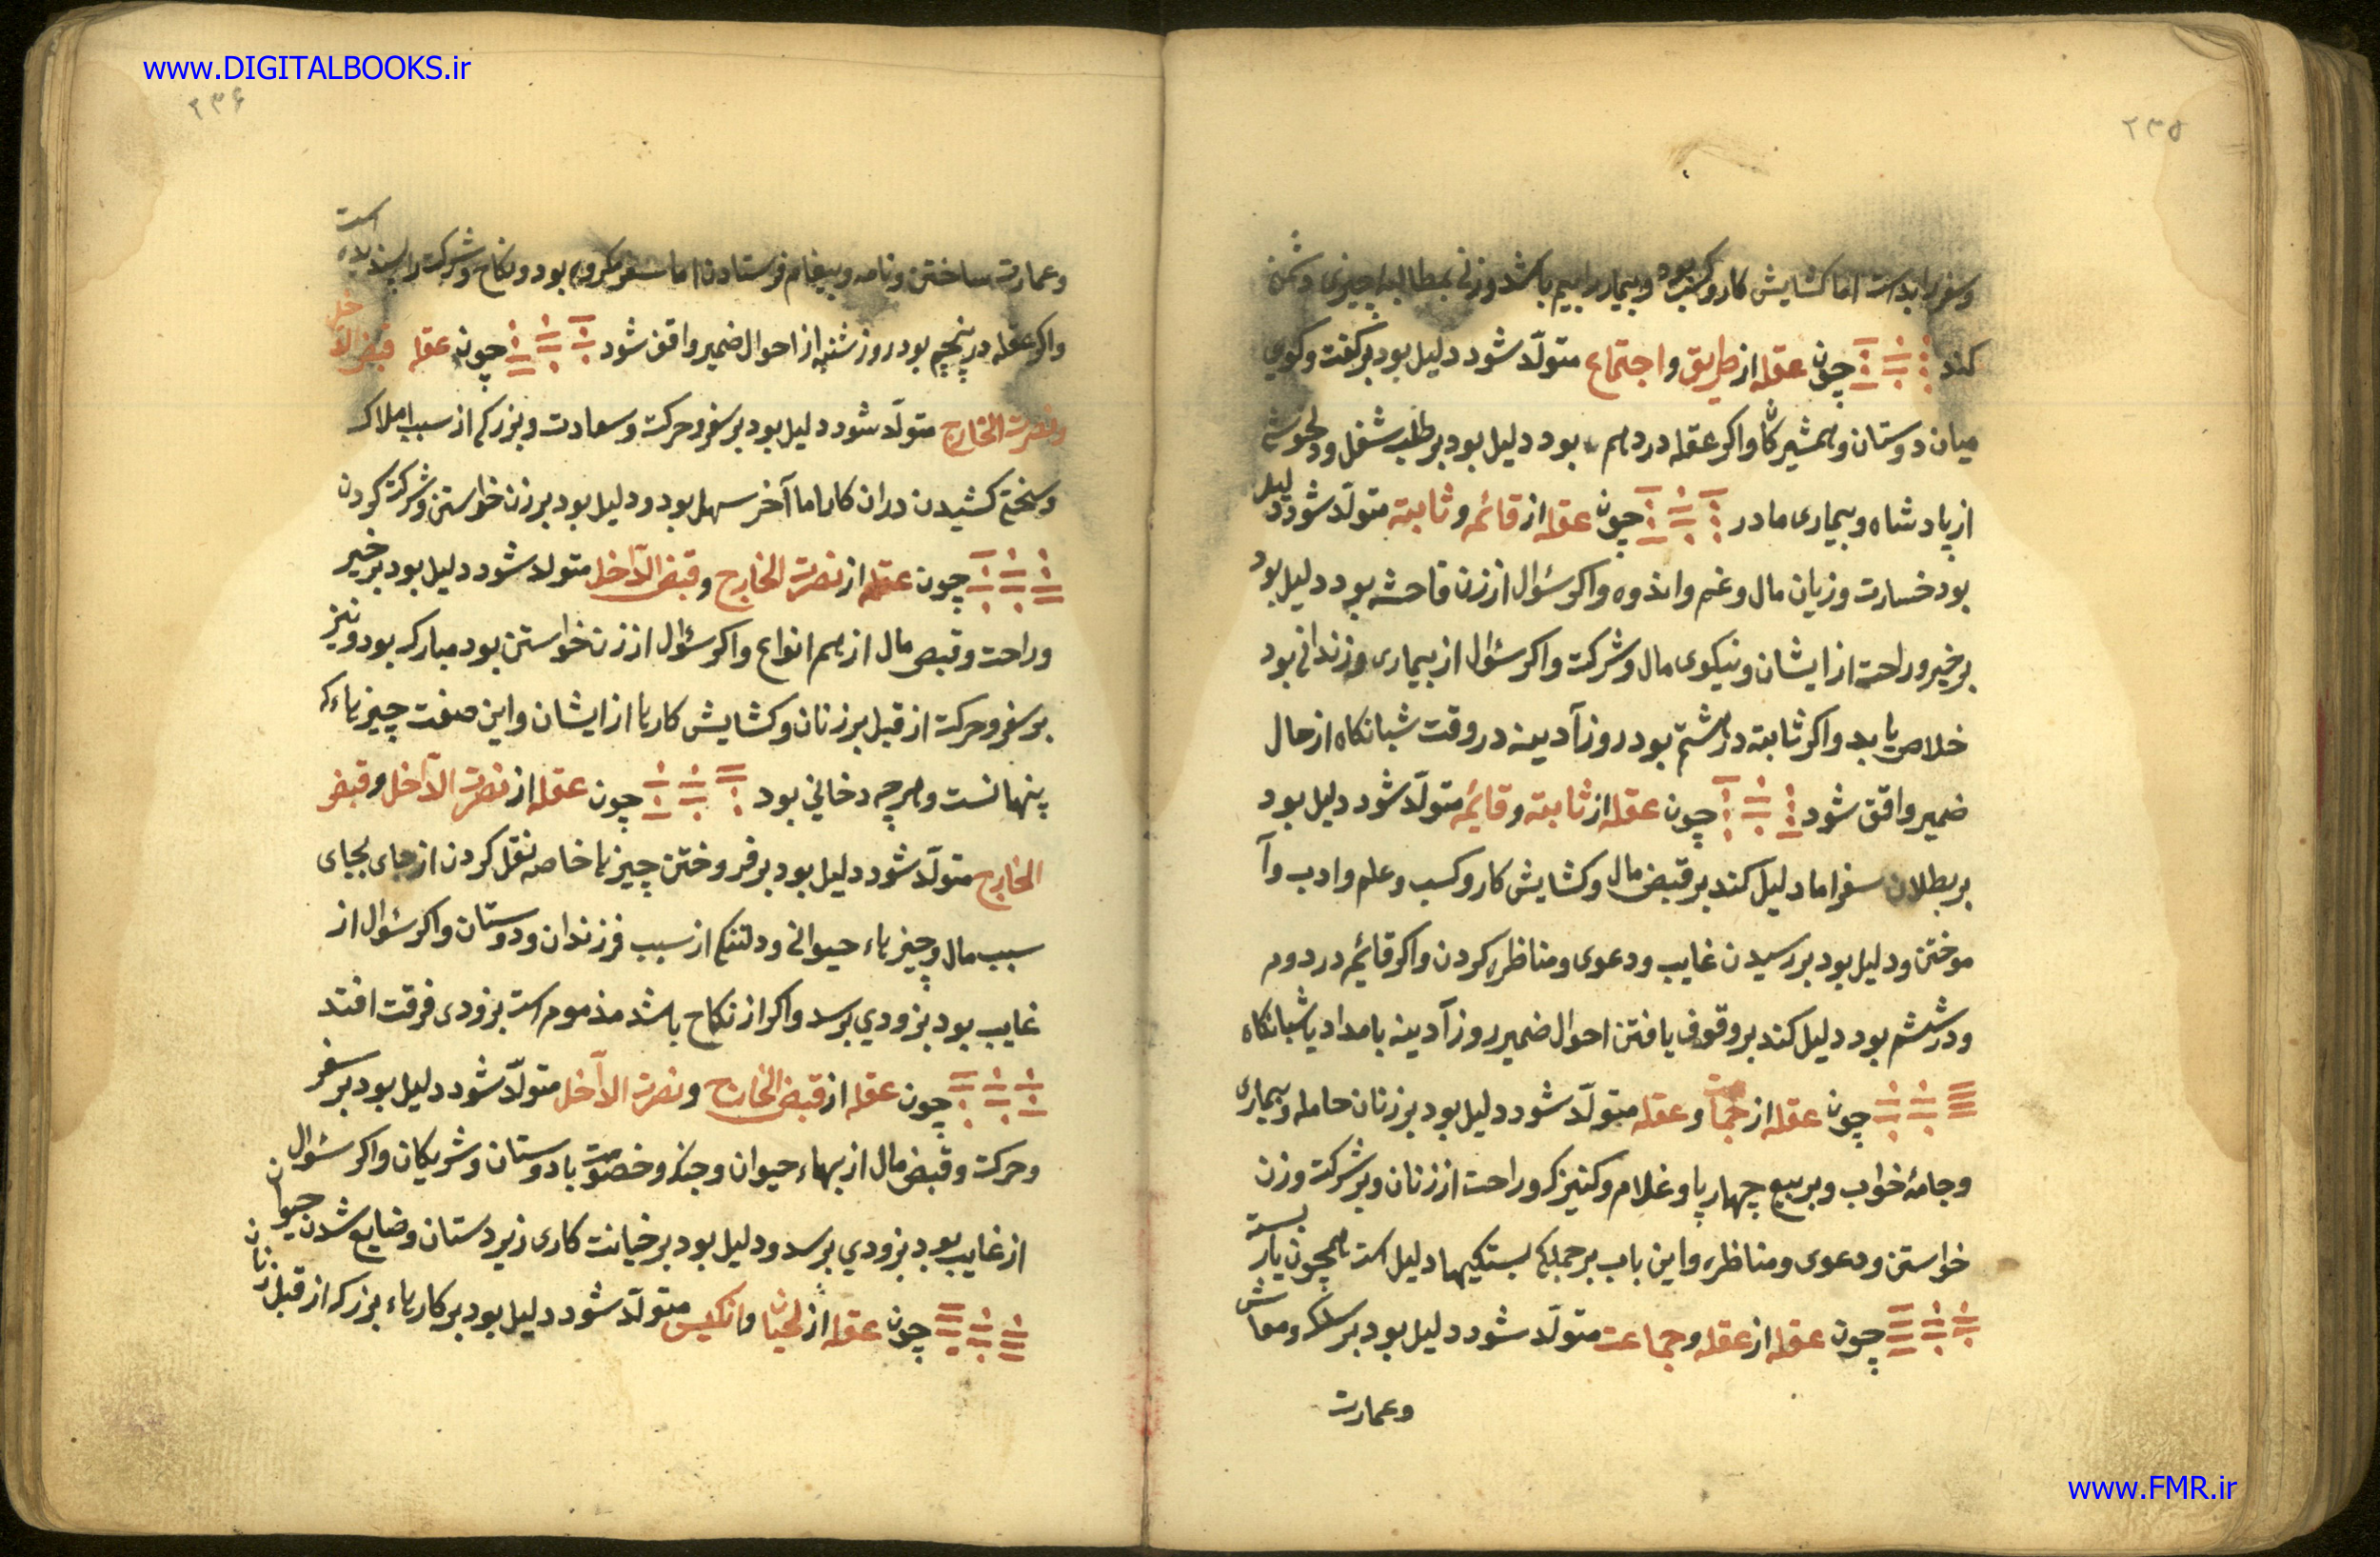 www.DIGITALBOOKS.ir
۲۳۵
وسفر را بد است اما کشایش کار وکسب بود وبیمار را بیم باشد وزنی بمطالبه چیزی دشمنی
کند چون عقله از طریق و اجتماع متولّد شود دلیل بود بر کفت وکوی
میان دوستان وهمشیرکان واکر عقله در دهم بود دلیل بود بر طلب شغل ودلخوشی
از پادشاه وبیماری مادر چون عقله از قائمه و ثابته متولّد شود دلیل
بود خسارت وزیان مال وغم واندوه واکر سؤال از زن فاحشه بود دلیل بود
بر خیر وراحت از ایشان ونیکوی مال وشرکت واکر سؤال از بیماری وزندانی بود
خلاص یابد واکر ثابته در هشتم بود روز آدینه در وقت شبانکاه از حال
ضمیر واقف شود چون عقله از ثابته و قائمه متولّد شود دلیل بود
بر بطلان سفر اما دلیل کند بر قبض مال وکشایش کار وکسب وعلم وادب وآ
موختن ودلیل بود بر رسیدن غایب ودعوی ومناظره کردن واکر قائمه در دوم
ودر ششم بود دلیل کند بر وقوف یافتن احوال ضمیر روز آدینه بامداد یا شبانکاه
چون عقله از جماعت و عقله متولّد شود دلیل بود بر زنان حامله وبیماری
وجامهٔ خواب وبر بیع چهارپا وغلام وکنیزک وراحت از زنان وبر شرکت وزن
خواستن ودعوی ومناظره واین باب بر جملکی بستکیها دلیل است همچون یار بسته
چون عقله از عقله و جماعت متولّد شود دلیل بود بر ملک ومعاش
وعمارت
۲۳۶
وعمارت ساختن ونامه وپیغام فرستادن اما سفر مکروه بود ونکاح وشرکت را پسندیده است
واکر عقله در پنجم بود روز شنبه از احوال ضمیر واقف شود چون عقله قبض الداخل
ونصرت الخارج متولّد شود دلیل بود بر سفر وحرکت وسعادت وبزرکی از سبب املاک
وسختی کشیدن در ان کار اما آخر سهل بود ودلیل بود بر زن خواستن وشرکت کردن
چون عقله از نصرت الخارج و قبض الدّاخل متولد شود دلیل بود بر خیر
وراحت وقبض مال از همه انواع واکر سؤال از زن خواستن بود مبارک بود ونیز
بر سفر وحرکت از قبل بر زنان وکشایش کارها از ایشان واین صفت چیزهاء که
پنهانست وهرچه دخانی بود چون عقله از نصرت الدّاخل و قبض
الخارج متولّد شود دلیل بود بر فروختن چیزها خاصه نقل کردن از جای بجای
سبب مال وچیزهاء حیوانی ودلتنکی از سبب فرزندان ودوستان واکر سؤال از
غایب بود بزودی برسد واکر از نکاح باشد مذموم است بزودی فرقت افتد
چون عقله از قبض الخارج و نصرت الدّاخل متولّد شود دلیل بود بر سفر
وحرکت وقبض مال از بهاء حیوان وجنک وخصومت با دوستان وشریکان واکر سؤال
از غایب بود بزودی برسد ودلیل بود بر خیانت کاری زیردستان وضایع شدن حیوان
چون عقله از لحیان و انکیس متولّد شود دلیل بود بر کارهاء بزرک از قبل زنان
www.FMR.ir